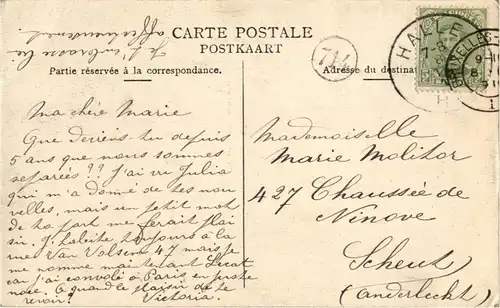 Je t'embrasse bien
affectueusement
CARTE POSTALE
POSTKAART
Partie réservée à la correspondance.
Adresse du destinat
714
HAL
7-8
H
BRUXELLES
Ma chère Marie
Que deviens-tu depuis
5 ans que nous sommes
séparées?? J'ai vu Julia
qui m'a donné de tes nou
velles, mais un petit mot
de ta part me ferait plai
sir. J'habite toujours à la
rue Van Volsem 47 mais je
me nomme maintenant
car j'ai convolé à Paris en juste
noce. A quand le plaisir de te
revoir! Victoria.
Mademoiselle
Marie Molitor
427 Chaussée de
Ninove
Scheut
(Anderlecht)